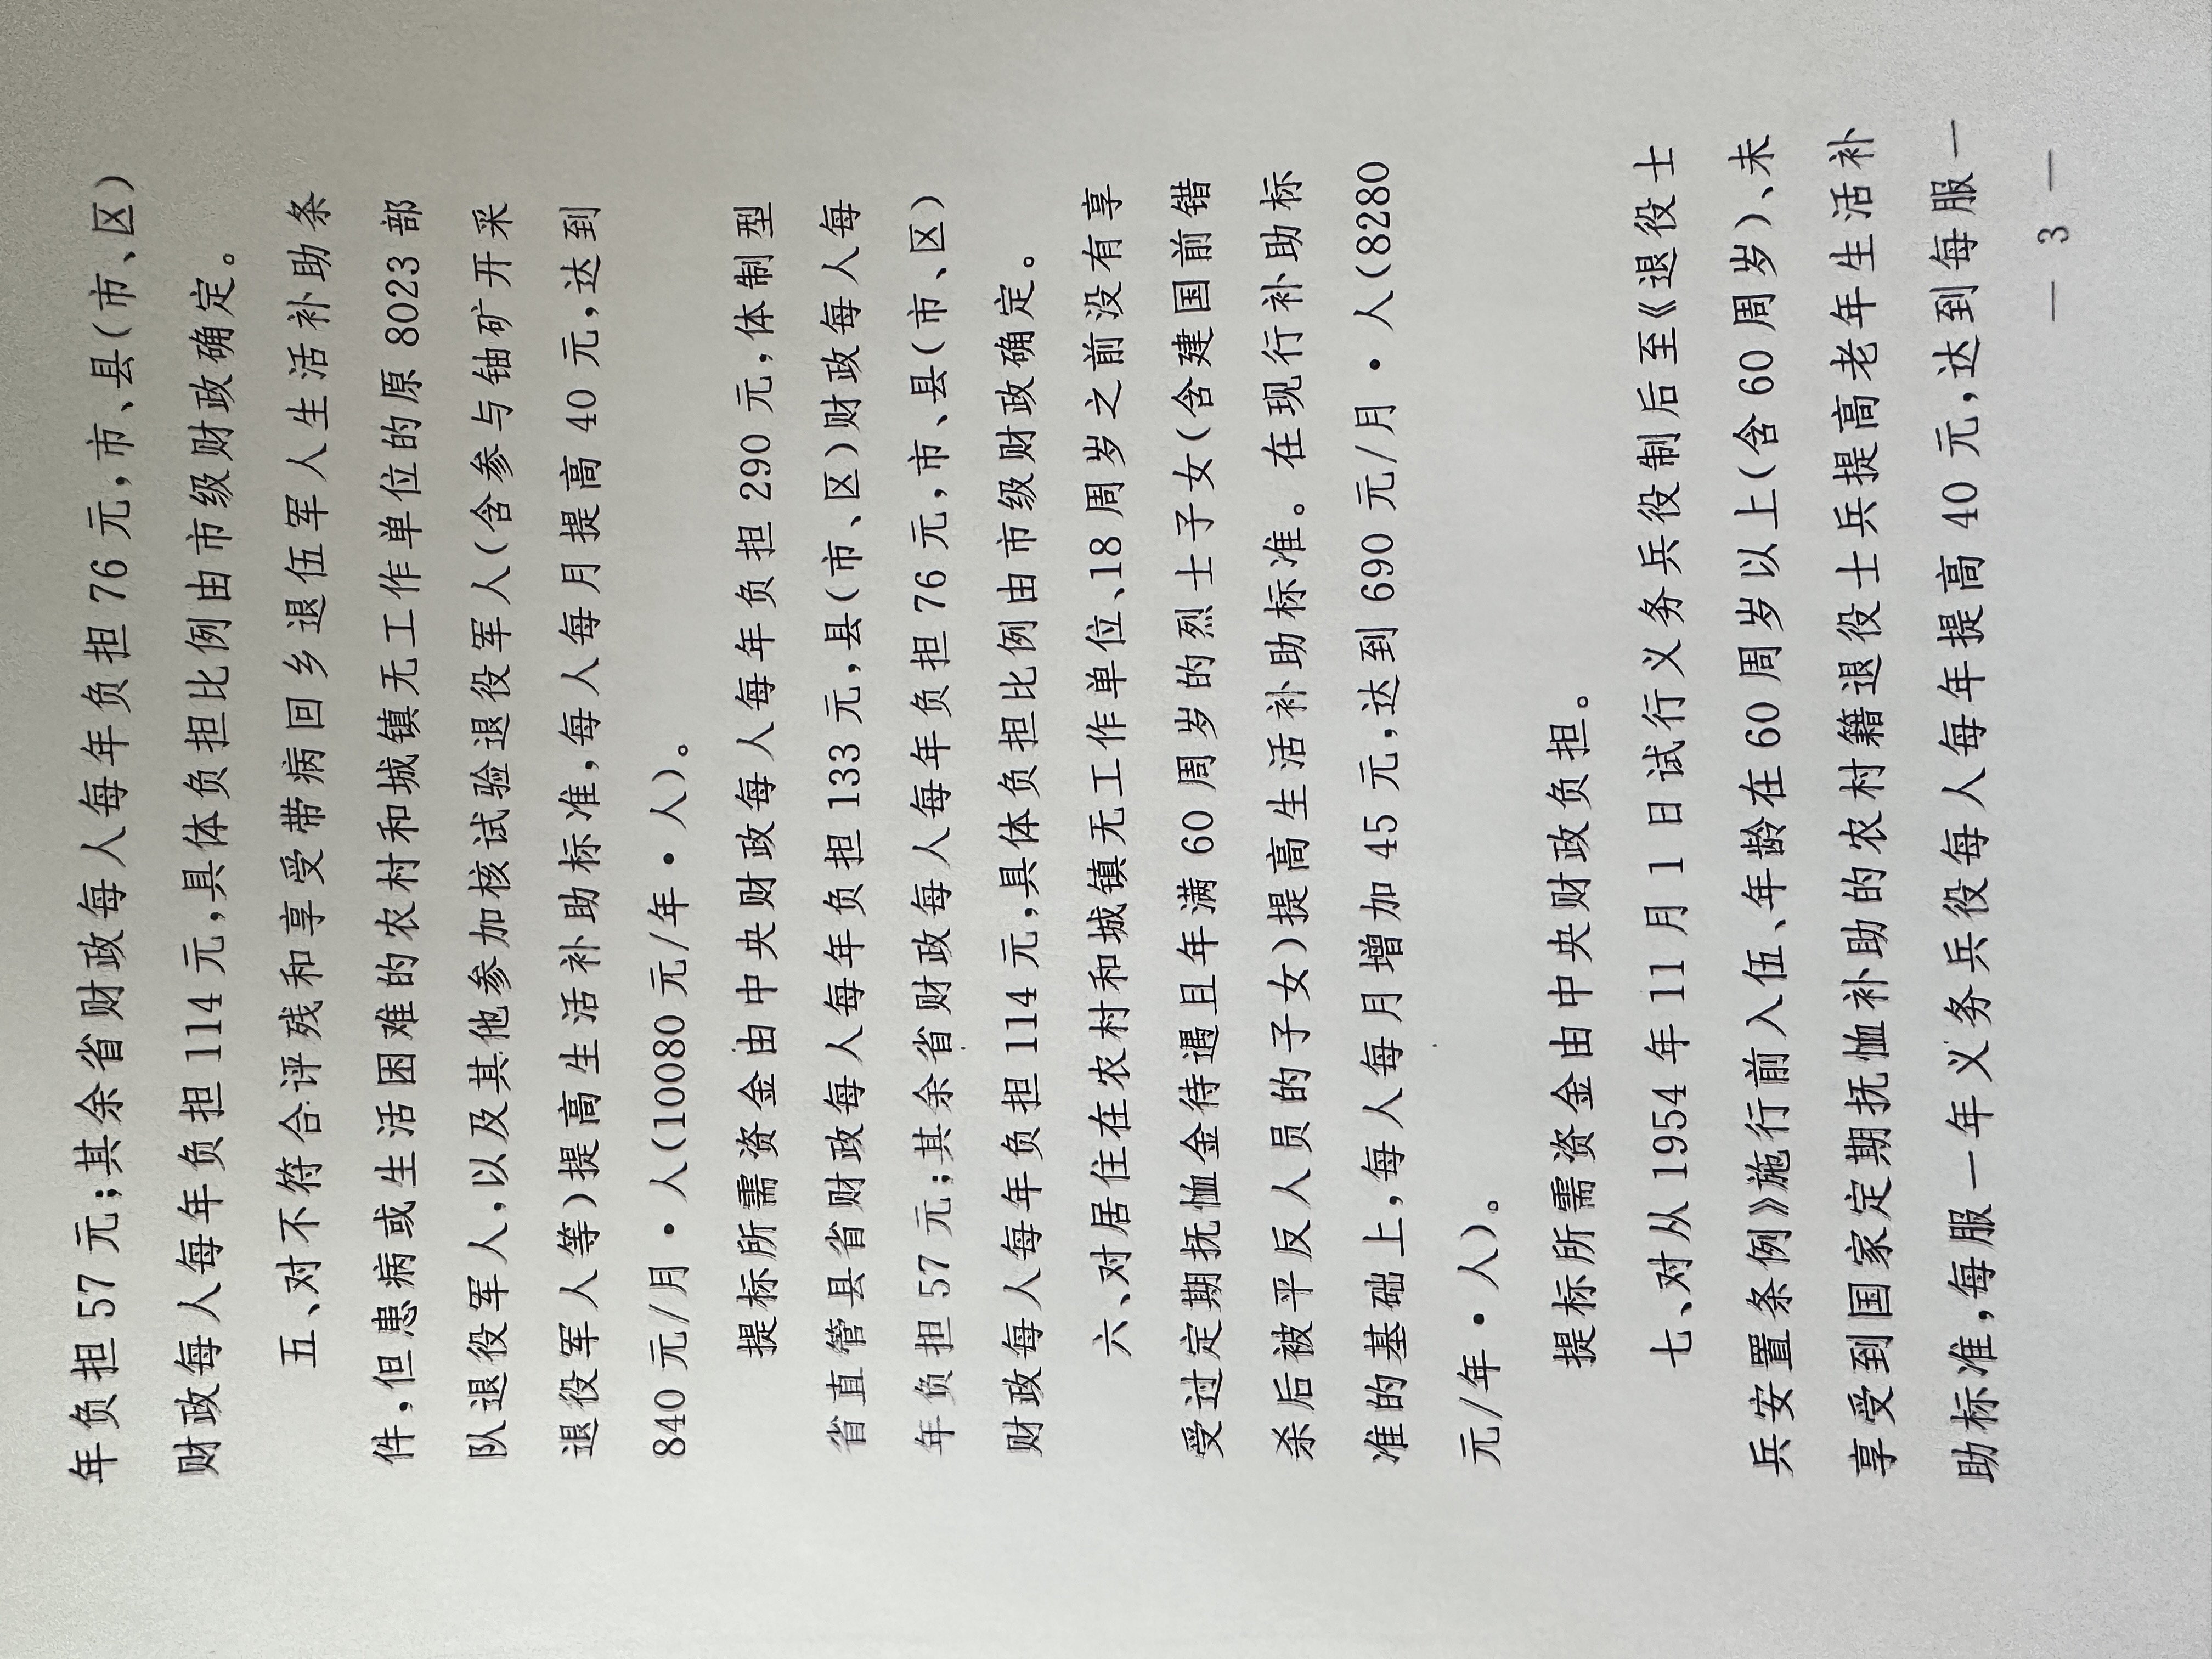 年负担 57 元；其余省财政每人每年负担 76 元，市、县（市、区）
财政每人每年负担 114 元，具体负担比例由市级财政确定。
五、对不符合评残和享受带病回乡退伍军人生活补助条
件，但患病或生活困难的农村和城镇无工作单位的原 8023 部
队退役军人，以及其他参加核试验退役军人（含参与铀矿开采
退役军人等）提高生活补助标准，每人每月提高 40 元，达到
840 元/月·人（10080 元/年·人）。
提标所需资金由中央财政每人每年负担 290 元，体制型
省直管县省财政每人每年负担 133 元，县（市、区）财政每人每
年负担 57 元；其余省财政每人每年负担 76 元，市、县（市、区）
财政每人每年负担 114 元，具体负担比例由市级财政确定。
六、对居住在农村和城镇无工作单位、18 周岁之前没有享
受过定期抚恤金待遇且年满 60 周岁的烈士子女（含建国前错
杀后被平反人员的子女）提高生活补助标准。在现行补助标
准的基础上，每人每月增加 45 元，达到 690 元/月·人（8280
元/年·人）。
提标所需资金由中央财政负担。
七、对从 1954 年 11 月 1 日试行义务兵役制后至《退役士
兵安置条例》施行前入伍、年龄在 60 周岁以上（含 60 周岁）、未
享受到国家定期抚恤补助的农村籍退役士兵提高老年生活补
助标准，每服一年义务兵役每人每年提高 40 元，达到每服一
— 3 —